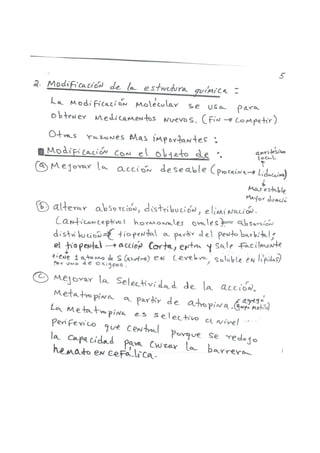 5
2. Modificación de la estructura química :
La Modificación Molecular se usa para
obtener Medicamentos Nuevos. (Fin → Competir)
Otras razones Mas importantes :
Modificación con el objeto de :
anestésico
local
(a) Mejorar la acción deseable (procaína → Lidocaína)
Mas estable
Mayor duració
(b) alterar absorción, distribución, eliminación.
(anticonceptivos hormonales orales) absorción
distribución tiopental a partir del pentobarbital;
el tiopental → acción Corta, entra y sale facilmente
tiene 1 atomo de S (azufre) en cerebro, soluble en lípidos)
por uno de oxígeno.
(c) Mejorar la Selectividad de la acción.
Metatropina a partir de atropina. (Se agregó
grupo Metilo)
La Metatropina es selectivo a nivel
Periferico que Central porque se redujo
la capacidad para cruzar la barrera
hematoencefálica.